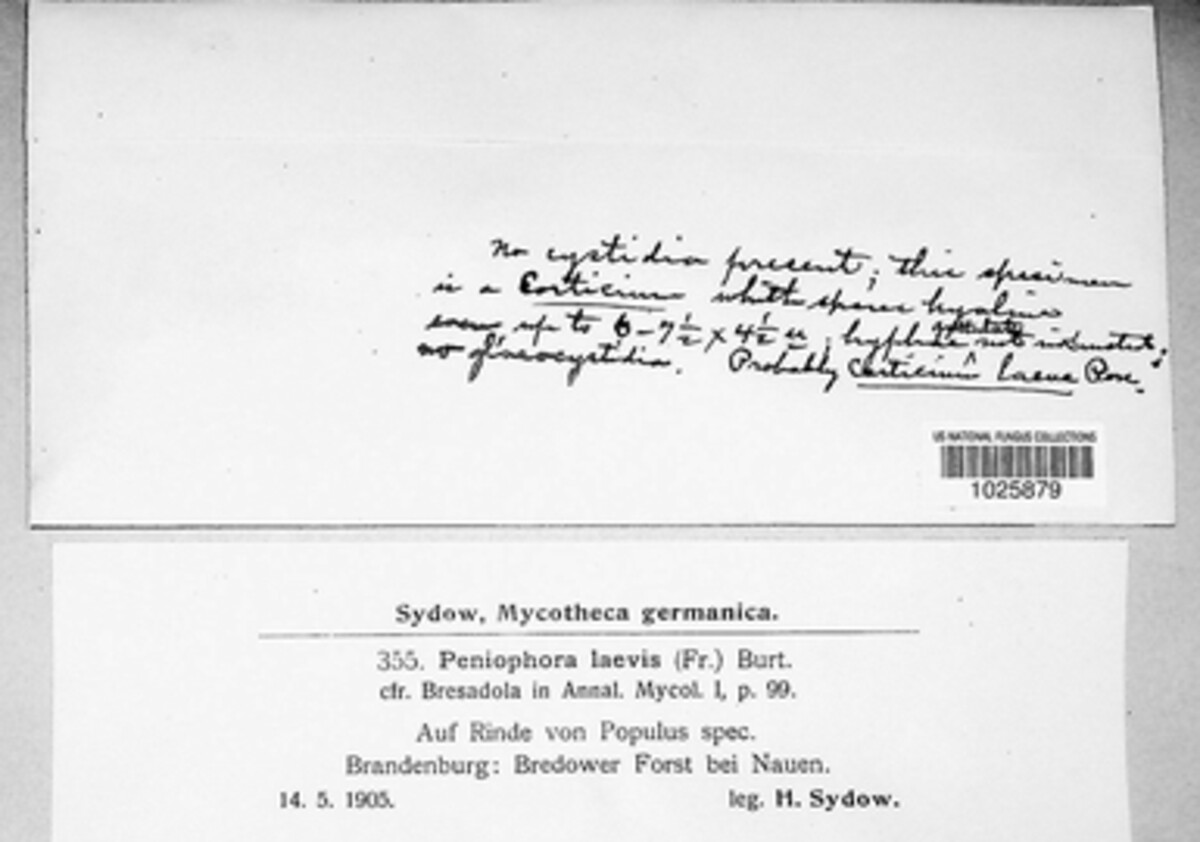 No cystidia present; this specimen
is a Corticium with spores hyaline
even up to 6-7½ x 4½ u; hyphae not incrusted;
no gloeocystidia. Probably Corticium laeve Pers.
US NATIONAL FUNGUS COLLECTIONS
1025879
Sydow, Mycotheca germanica.
355. Peniophora laevis (Fr.) Burt.
cfr. Bresadola in Annal. Mycol. I, p. 99.
Auf Rinde von Populus spec.
Brandenburg: Bredower Forst bei Nauen.
14. 5. 1905. leg. H. Sydow.